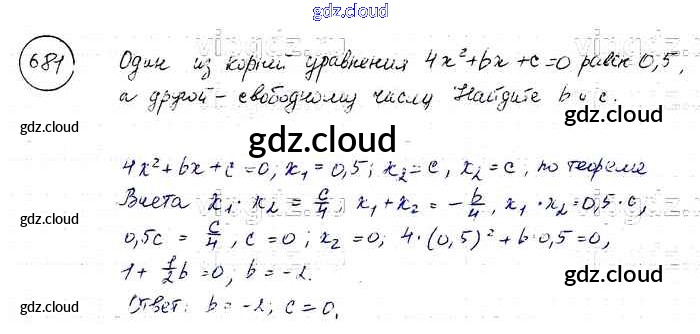 gdz.cloud
681 Один из корней уравнения 4x²+bx+c=0 равен 0,5,
а другой – свободному числу Найдите b и c.
gdz.cloud gdz.cloud
gdz.cloud
4x²+bx+c=0; x₁=0,5; x₂=c, x₂=c; по теореме
Виета x₁·x₂ = c/4, x₁+x₂ = -b/4, x₁·x₂=0,5·c,
0,5c = c/4, c=0; x₂=0; 4·(0,5)²+b·0,5=0,
1+ 1/2b=0; b=-2.
gdz.cloud gdz.cloud
Ответ: b=-2; c=0.